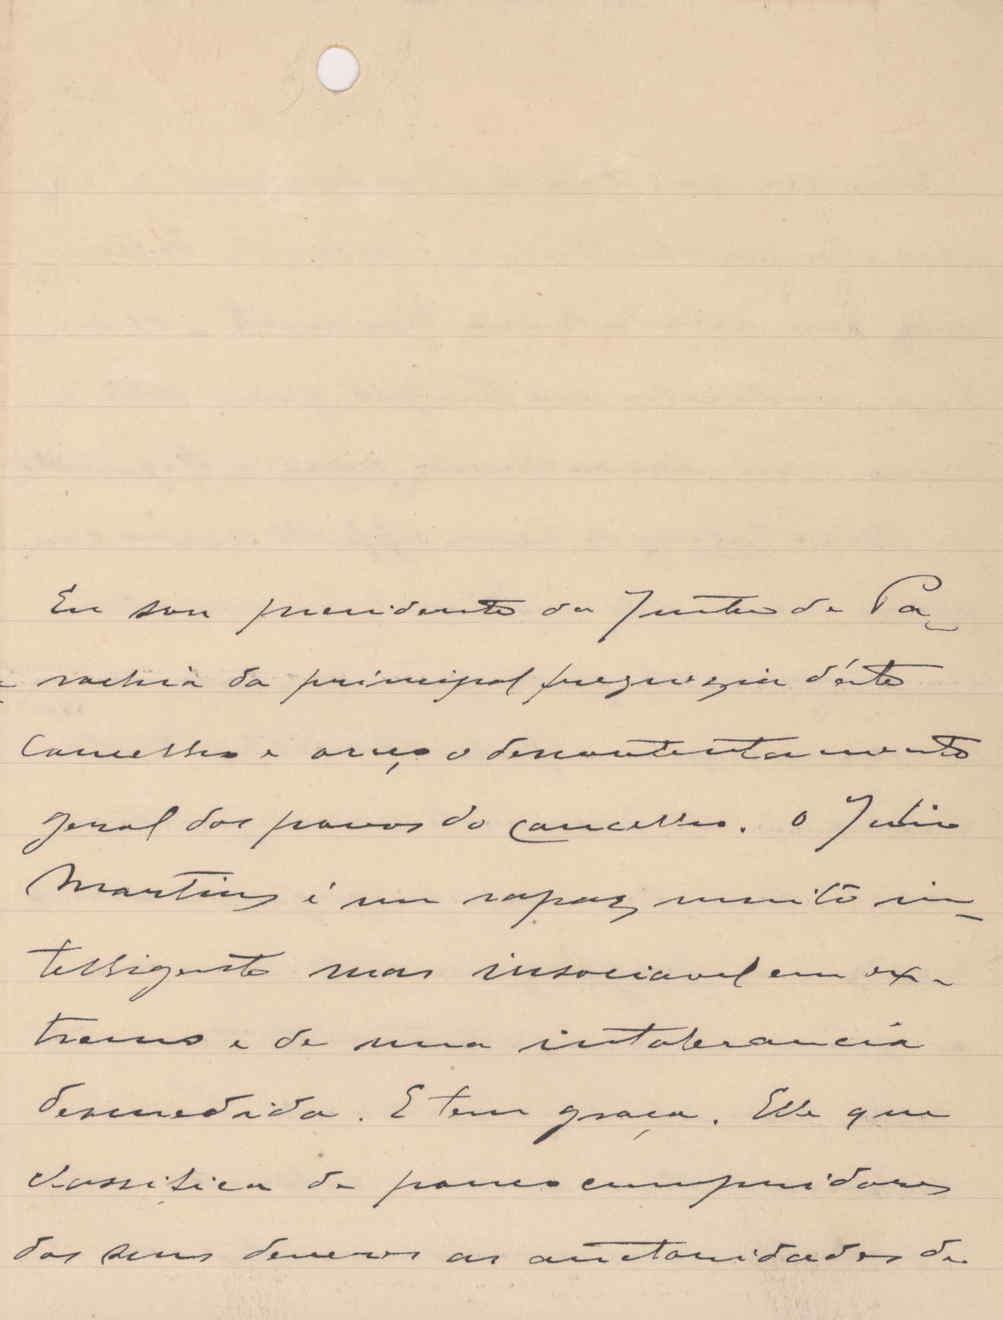 Eu sou presidente da Junta de Pa-
rochia da principal freguezia d'éste
Concelho e ouço o descontentamento
geral dos povos do concelho. O Julio
Martins é um rapaz muito in-
telligente mas insociavel em ex-
tremo e de uma intolerancia
desmedida. E tem graça. Elle que
classifica de pouco cumpridores
dos seus deveres as auctoridades de